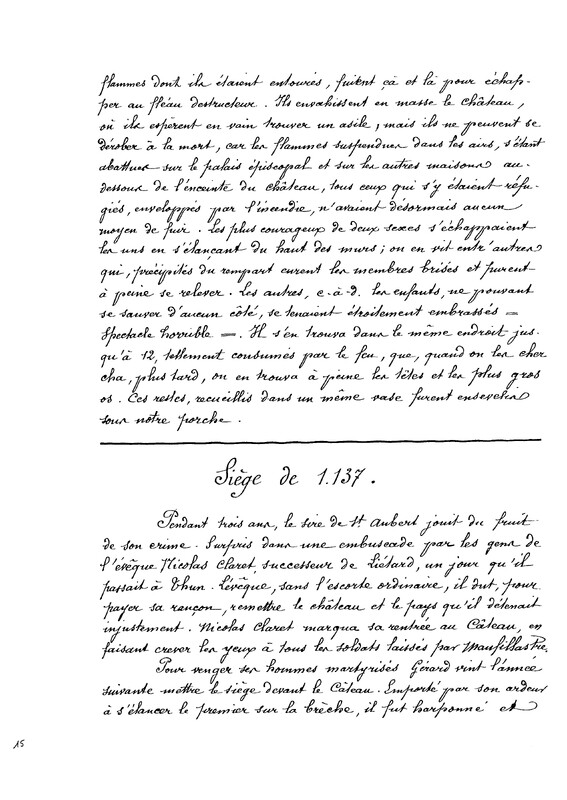 flammes dont ils étaient entourés, fuient çà et là pour échap-
per au fléau destructeur. Ils envahissent en masse le château,
où ils espèrent en vain trouver un asile, mais ils ne peuvent se
dérober à la mort, car les flammes suspendues dans les airs, s'étant
abattues sur le palais épiscopal et sur les autres maisons au-
dessous de l'enceinte du château, tous ceux qui s'y étaient réfu-
giés, enveloppés par l'incendie, n'avaient désormais aucun
moyen de fuir. Les plus courageux de deux sexes s'échappaient
les uns en s'élançant du haut des murs ; on en vit entr'autres
qui, précipités du rempart eurent les membres brisés et purent
à peine se relever. Les autres, c.à.d. les enfants, ne pouvant
se sauver d'aucun côté, se tenaient étroitement embrassés =
Spectacle horrible =. Il s'en trouva dans le même endroit jus-
qu'à 12, tellement consumés par le feu, que, quand on les cher
cha, plus tard, on en trouva à peine les têtes et les plus gros
os. Ces restes, recueillis dans un même vase furent ensevelis
sous notre porche.
Siège de 1.137.
Pendant trois ans, le sire de St Aubert jouit du fruit
de son crime. Surpris dans une embuscade par les gens de
l'évêque Nicolas Claret, successeur de Liétard, un jour qu'il
passait à Thun. L'évêque, sans l'escorte ordinaire, il dut, pour
payer sa rançon, remettre le château et le pays qu'il détenait
injustement. Nicolas Claret marqua sa rentrée au Câteau, en
faisant crever les yeux à tous les soldats laissés par
Pour venger ses hommes martyrisés Gérard vint l'année
suivante mettre le siège devant le Câteau. Emporté par son ardeur
à s'élancer le premier sur la brèche, il fut harponné et
15